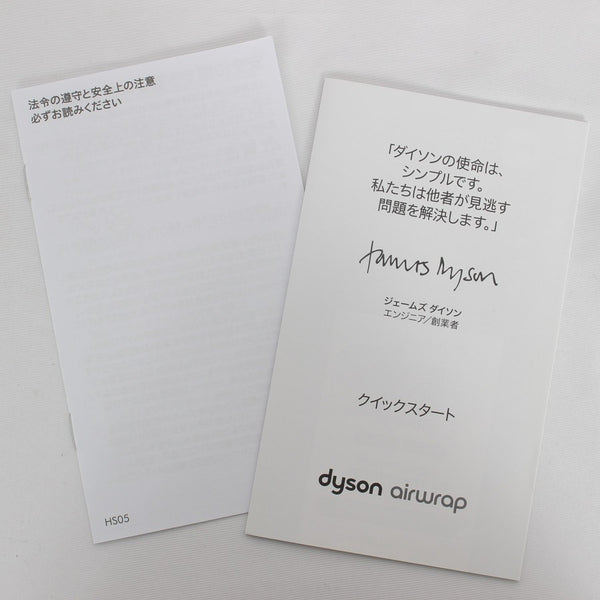 法令の遵守と安全上の注意
必ずお読みください
HS05
「ダイソンの使命は、
シンプルです。
私たちは他者が見逃す
問題を解決します。」
James Dyson
ジェームズ ダイソン
エンジニア/創業者
クイックスタート
dyson airwrap